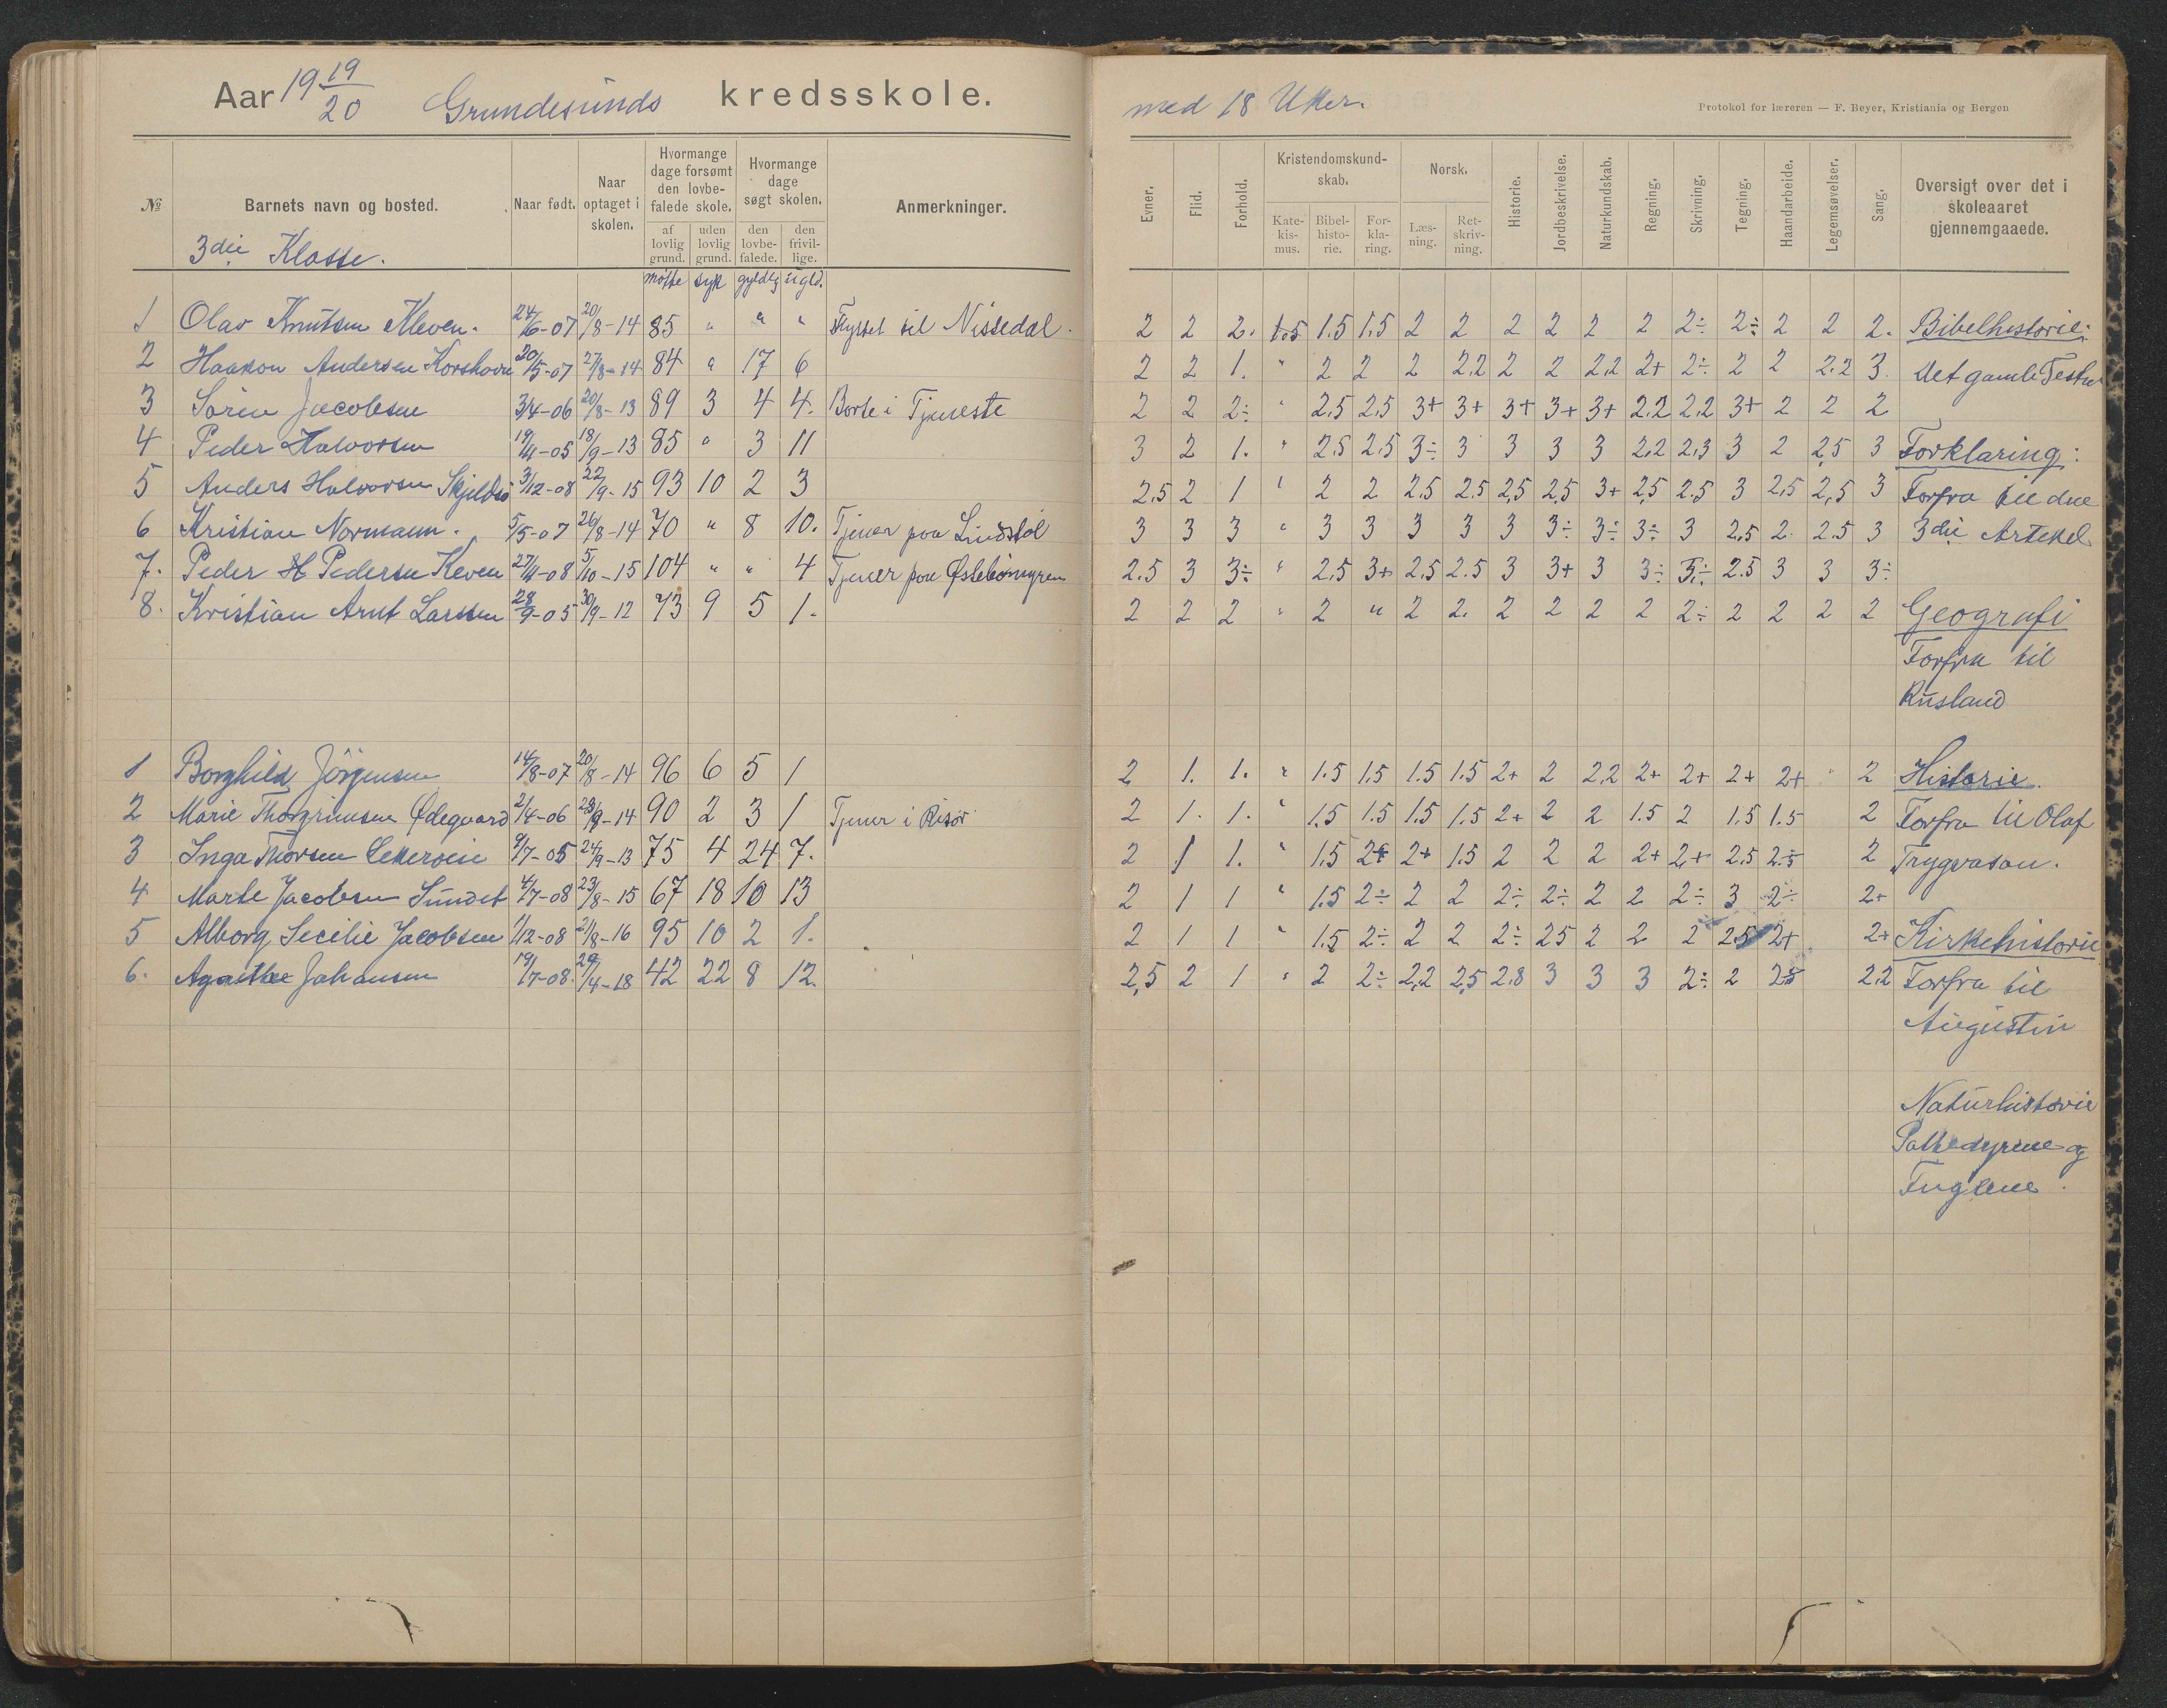 Aar 19 19/20 Grundesunds kredsskole.
№ Barnets navn og bosted. Naar født. Naar optaget i skolen. Hvormange dage forsømt den lovbefalede skole. af lovlig grund. uden lovlig grund. Hvormange dage søgt skolen. den lovbefalede. den frivillige. Anmerkninger.
3die Klasse.
møtte syk gyldig ugld.
1 Olav Knutsen Kleven. 24/6-07 20/8-14 85 " " " Flyttet til Nissedal.
2 Haakon Andersen Korshavn 20/5-07 27/8-14 84 " 17 6
3 Sören Jacobsen 3/4-06 20/8-13 89 3 4 4. Borte i Tjeneste
4 Peder Halvorsen 19/4-05 18/9-13 85 " 3 11
5 Anders Halvorsen Skjeldsö 3/12-08 22/9-15 93 10 2 3
6 Kristian Normann. 5/5-07 26/8-14 70 " 8 10. Tjener paa Lindstöl
7. Peder H Pedersen Keven 27/4-08 5/10-15 104 " " 4 Tjener paa Øslebömyren
8. Kristian Arnt Larssen 28/9-05 30/9-12 73 9 5 1.
1 Borghild Jörgensen 14/8-07 20/8-14 96 6 5 1
2 Marie Thorgrimsen Ødegaard 2/4-06 23/9-14 90 2 3 1 Tjener i Risör
3 Inga Thorsen 9/7-05 24/9-13 75 4 24 7.
4 Marte Jacobsen Sundet 4/7-08 23/8-15 67 18 10 13
5 Alborg Secilie Jacobsen 1/12-08 21/8-16 95 10 2 1.
6. Agathe Johansen 19/7-08. 29/4-18 42 22 8 12.
med 18 Uker.
Protokol for læreren — F. Beyer, Kristiania og Bergen
Evner. Flid. Forhold. Kristendomskundskab. Katekismus. Bibelhistorie. Forklaring. Norsk. Læsning. Retskrivning. Historie. Jordbeskrivelse. Naturkundskab. Regning. Skrivning. Tegning. Haandarbeide. Legemsøvelser. Sang. Oversigt over det i skoleaaret gjennemgaaede.
2 2 2. 1.5 1.5 1.5 2 2 2 2 2 2 2÷ 2÷ 2 2 2. Bibelhistorie:
2 2 1. " 2 2 2 2.2 2 2 2.2 2+ 2÷ 2 2 2.2 3. Det gamle Testm
2 2 2÷ " 2.5 2.5 3+ 3+ 3+ 3+ 3+ 2.2 2.2 3+ 2 2 2
3 2 1. " 2.5 2.5 3÷ 3 3 3 3 2.2 2.3 3 2 2.5 3 Forklaring:
2.5 2 1 " 2 2 2.5 2.5 2,5 2.5 3+ 2,5 2.5 3 2,5 2,5 3 Forfra til den
3 3 3 " 3 3 3 3 3 3÷ 3÷ 3÷ 3 2,5 2. 2.5 3 3die Artekel
2.5 3 3÷ " 2.5 3+ 2.5 2.5 3 3+ 3 3÷ 3÷ 2.5 3 3 3÷
2 2 2 " 2 " 2 2. 2 2 2 2 2÷ 2 2 2 2 Geografi
Forfra til
Rusland
2 1. 1. " 1.5 1.5 1.5 1.5 2+ 2 2,2 2+ 2+ 2+ 2+ " 2 Historie.
2 1. 1. " 1.5 1.5 1.5 1.5 2+ 2 2 1.5 2 1.5 1.5 2 Forfra til Olaf
2 1 1. " 1.5 2+ 2+ 1.5 2 2 2 2+ 2+ 2.5 2.5 2 Trygvason.
2 1 1 " 1.5 2÷ 2 2 2÷ 2÷ 2 2 2÷ 3 2÷ 2+
2 1 1 " 1.5 2÷ 2 2 2÷ 2.5 2 2 2 2.5 2+ 2+ Kirkehistorie
2,5 2 1 " 2 2÷ 2,2 2,5 2.8 3 3 3 2÷ 2 2.5 2.2 Forfra til
Augustin
Naturhistorie
Pattedyrene og
Fuglene.